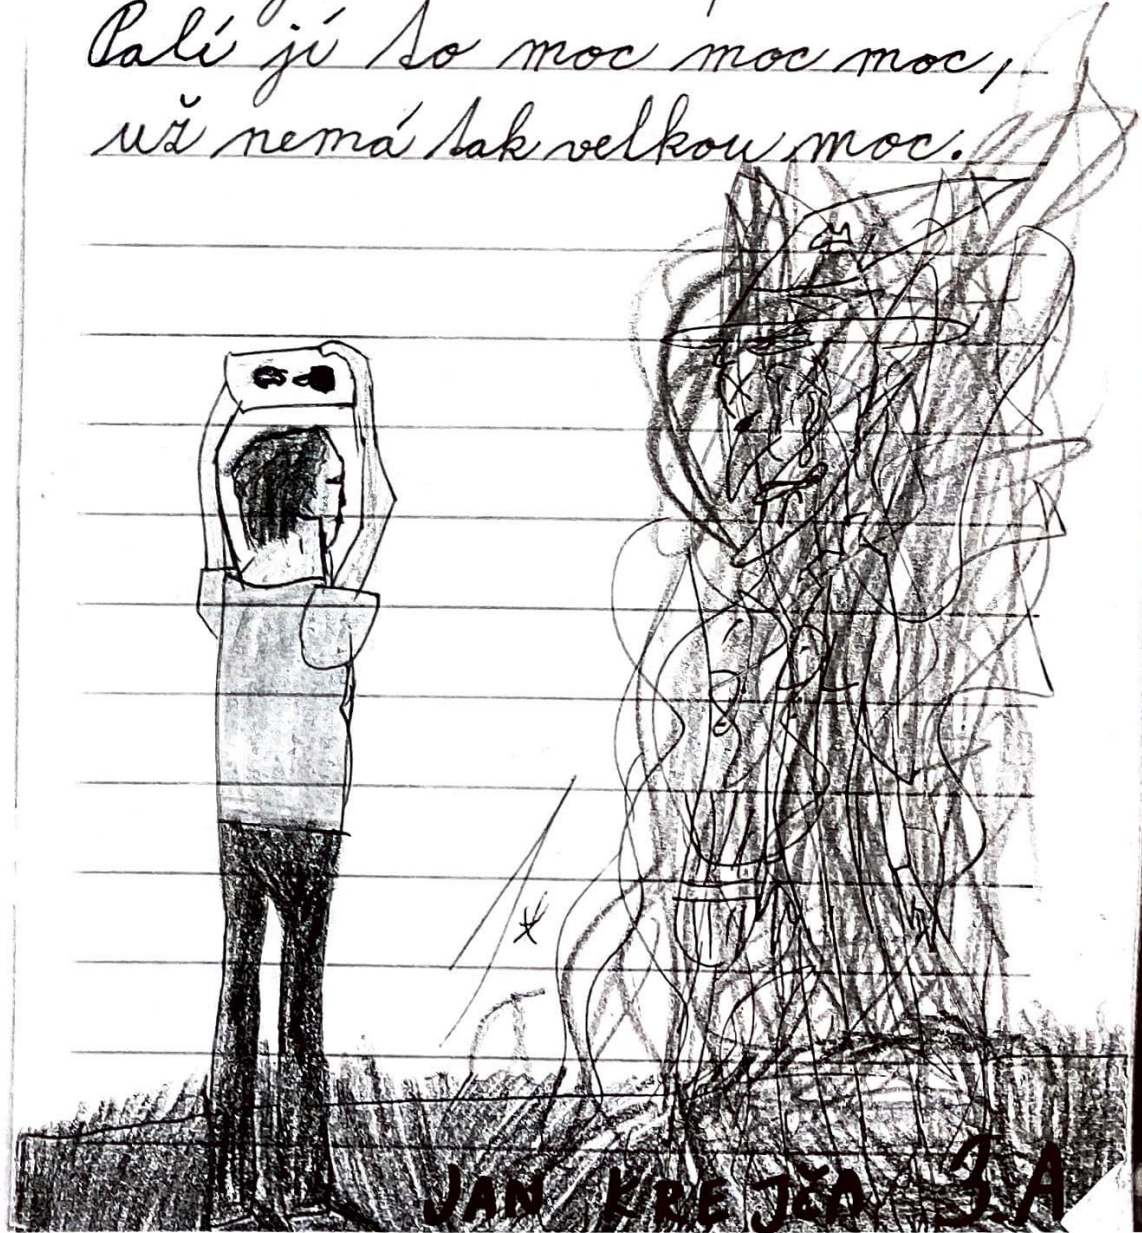 Palí jí to moc moc moc,
už nemá tak velkou moc.
JAN KREJČA 3.A